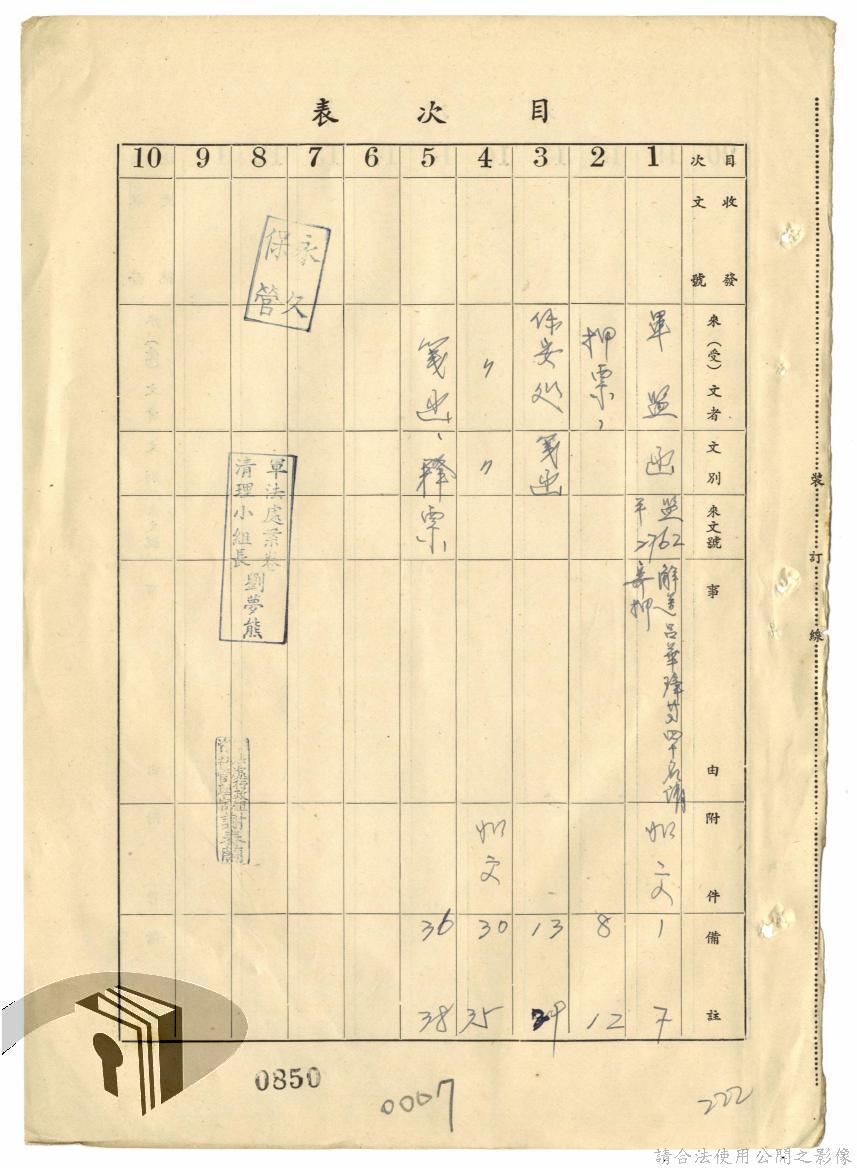 目次表
目次 1 2 3 4 5 6 7 8 9 10
收發文號
來(受)文者
文別
來文號
事由
附件
備註
軍 監
函
監
2762
解送呂華璋等四十名請
寄押
如文
1 7
押票、
8 12
保安処
箋函
13 29
〃
〃
如文
30 35
箋函、釋票
36 38
永久
保管
軍法處案卷
清理小組長劉夢熊
裝訂線
0850
0007
222
請合法使用公開之影像